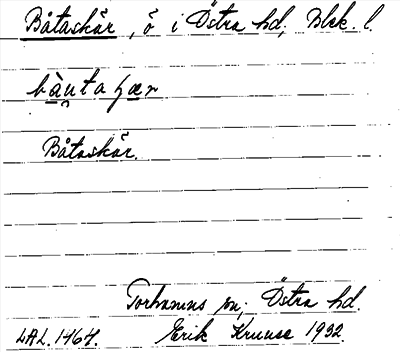 Båtaskär, ö i Östra hd, Blek. l.
bàu̯taʃær
Båtaskär.
Torhamns sn; Östra hd.
LAL. 1464. Erik Kruuse 1932.